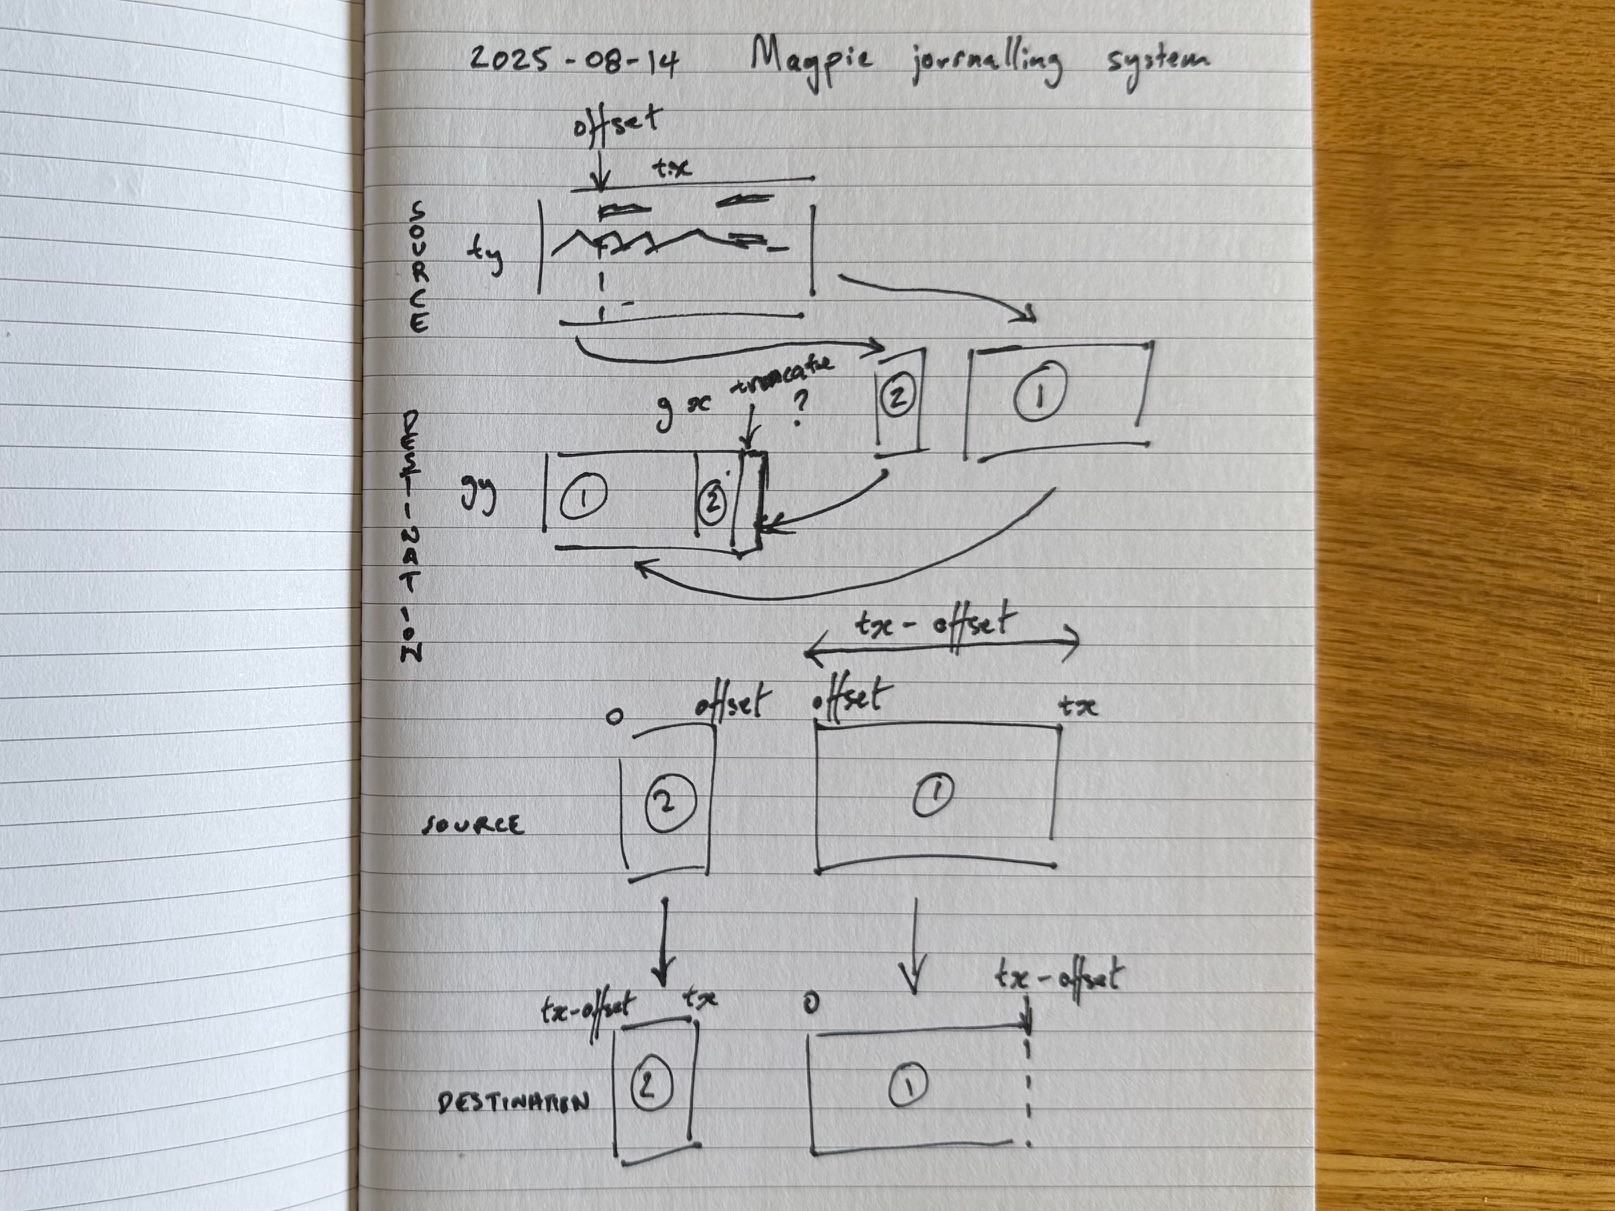 2025-08-14 Magpie journalling system
offset
tx
SOURCE
ty
truncate
gx ?
2 1
DESTINATION
gy 1 2
tx - offset
0 offset offset tx
2 1
SOURCE
tx-offset tx 0 tx-offset
2 1
DESTINATION